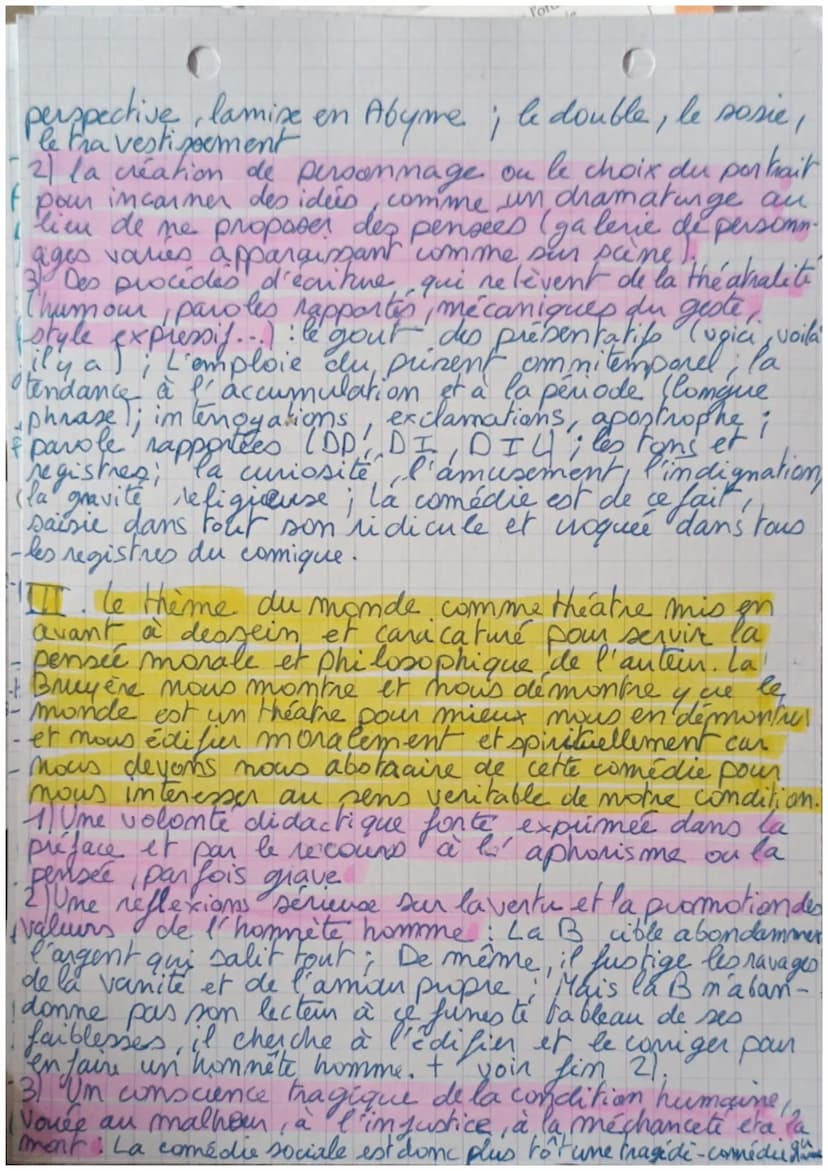 perspective, la mise en Abyme ; le double, le sosie,
le travestissement
2) la création de personnage ou le choix du portrait
pour incarner des idées, comme un dramaturge au
lieu de ne proposer des pensées (galerie de personn-
ages variés apparaissant comme sur scène).
3) Des procédés d'écriture qui relèvent de la théatralité
(humour, paroles rapportés, mécaniques du geste,
style expressif...) : le gout des présentatifs (voici, voilà
il y a) ; L'emploie du présent omnitemporel ; la
tendance à l'accumulation et à la période (longue
phrase) ; interrogations, exclamations, apostrophe ;
parole rapportées (DD, DI, DIL) ; les tons et
registres ; la curiosité, l'amusement, l'indignation,
la gravité religieuse ; la comédie est de ce fait,
saisie dans tout son ridicule et croquée dans tous
les registres du comique.
III. Le thème du monde comme théatre mis en
avant à dessein et caricaturé pour servir la
pensée morale et philosophique de l'auteur. La
Bruyère nous montre et nous démontre que le
monde est un théatre pour mieux nous en démontrer
et nous édifier moralement et spirituellement car
nous devons nous abstraire de cette comédie pour
nous intéresser au sens veritable de notre condition.
1) Une volonté didactique forte exprimée dans la
préface et par le recours à l'aphorisme ou la
pensée, parfois grave
2) Une réflexions sérieuse sur la vertu et la promotion des
valeurs de l'honnète homme : La B cible abondammer
l'argent qui salit tout ; De même, il fustige les ravages
de la vanité et de l'amour propre ; Mais la B n'aban-
donne pas son lecteur à ce funeste tableau de ses
faiblesses, il cherche à l'édifier et le corriger pour
en faire un honnête homme. + voir fin 2).
3) Un conscience tragique de la condition humaine,
vouée au malheur, à l'injustice, à la méchanceté et à la
mort : La comédie sociale est donc plus tôt une tragédi-comédie